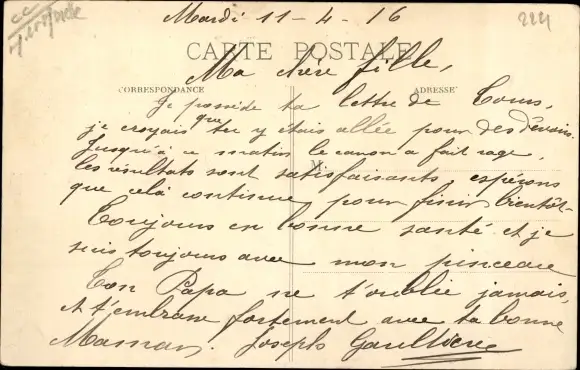 Mardi 11-4-16
CARTE POSTALE
Ma chère fille,
CORRESPONDANCE
ADRESSE
Je possède ta lettre de Tours,
je croyais que tu y étais allée pour des
Jusqu'à ce matin le canon a fait rage,
M
les résultats sont satisfaisants, espérons
que celà continue pour finir bientôt.
Toujours en bonne santé et je
suis toujours avec mon pinceau
Ton Papa ne t'oublie jamais,
et t'embrasse fortement avec ta bonne
Maman. Joseph Gaultier
224